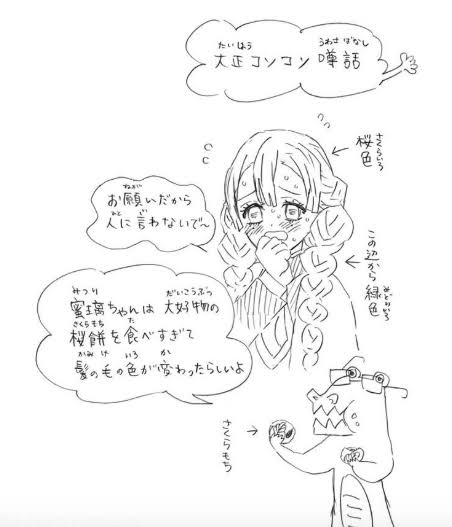 たいしょう うわさばなし
大正コソコソ噂話
さくらいろ
桜色
ねが
お願いだから
ひと い
人に言わないで〜
この辺から緑色
みどりいろ
みつり だいこうぶつ
蜜璃ちゃんは大好物の
さくらもち た
桜餅を食べすぎて
かみ け いろ か
髪の毛の色が変わったらしいよ
さくらもち